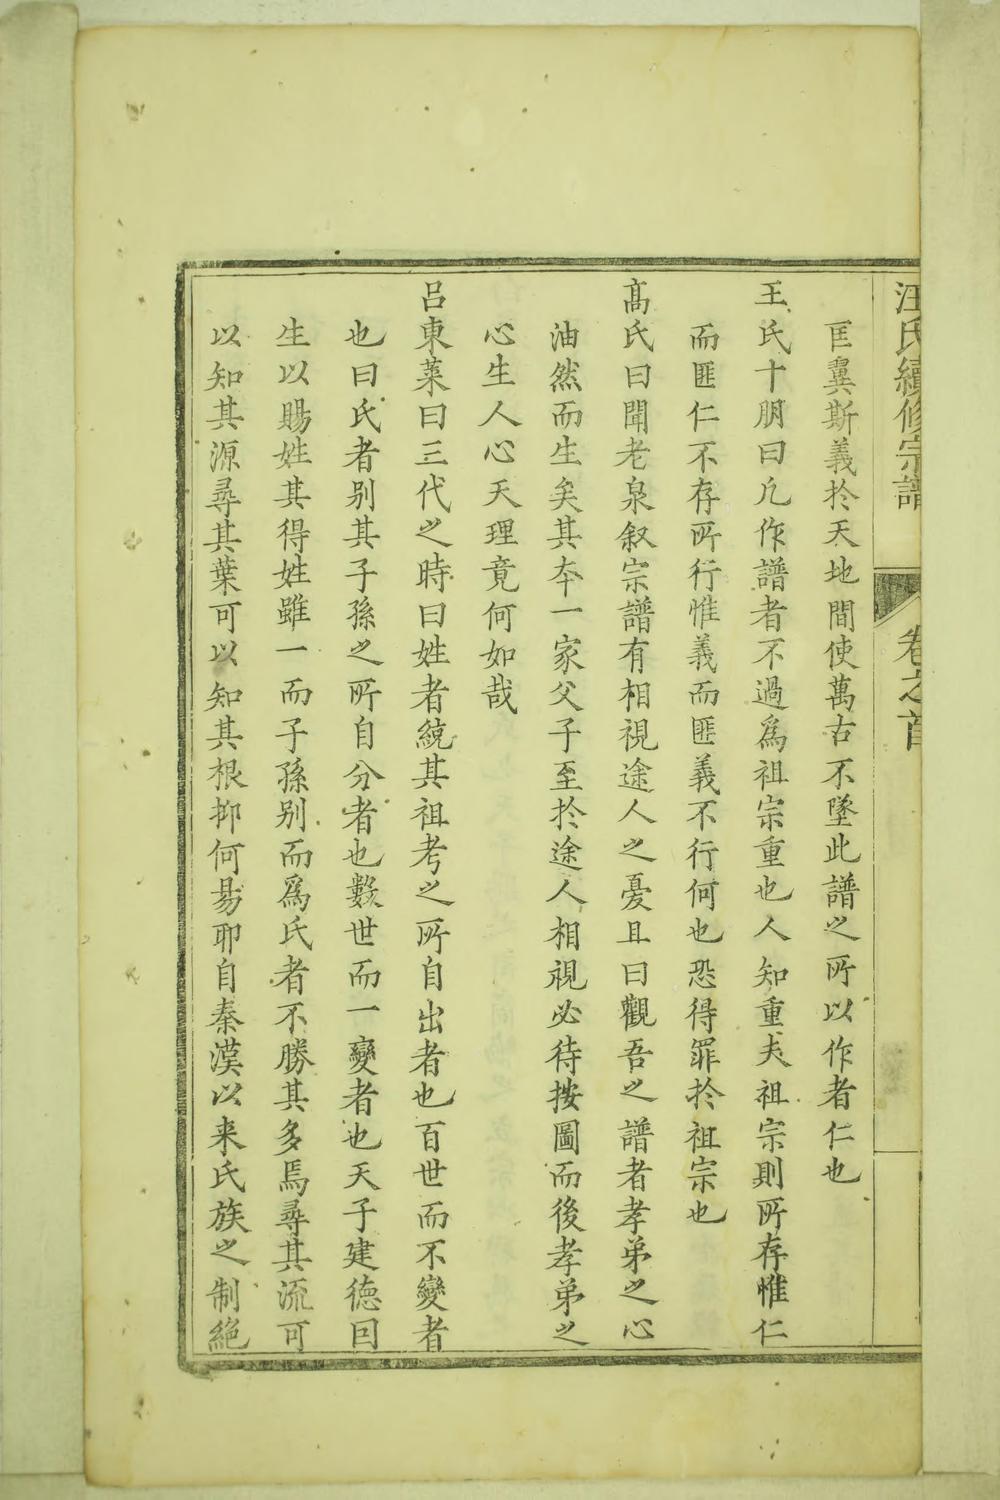 汪氏續修宗譜
卷之首
匡冀斯義於天地間使萬古不墜此譜之所以作者仁也
王氏十朋曰凡作譜者不過為祖宗重也人知重夫祖宗則所存惟仁
而匪仁不存所行惟義而匪義不行何也恐得罪於祖宗也
高氏曰聞老泉叙宗譜有相視途人之憂且曰觀吾之譜者孝弟之心
油然而生矣其夲一家父子至於途人相視必待按圖而後孝弟之
心生人心天理竟何如哉
吕東萊曰三代之時曰姓者統其祖考之所自出者也百世而不變者
也曰氏者别其子孫之所自分者也數世而一變者也天子建德囙
生以賜姓其得姓雖一而子孫别而爲氏者不勝其多焉尋其流可
以知其源尋其葉可以知其根抑何易耶自秦漢以来氏族之制絕